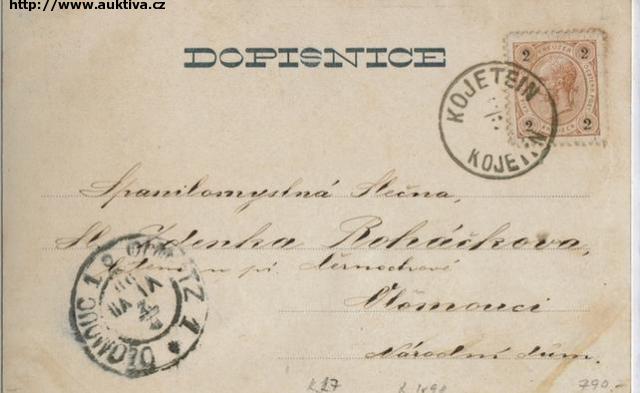 http://www.auktiva.cz
DOPISNICE
2 2
KREUZER
2 2
KOJETEIN
KOJETÍN
Spanilomyslná Slečna,
Sl. Zdenka Boháčkova,
Olomouci
Národní dům.
OLMÜTZ 1
OLOMOUC 1
790.-